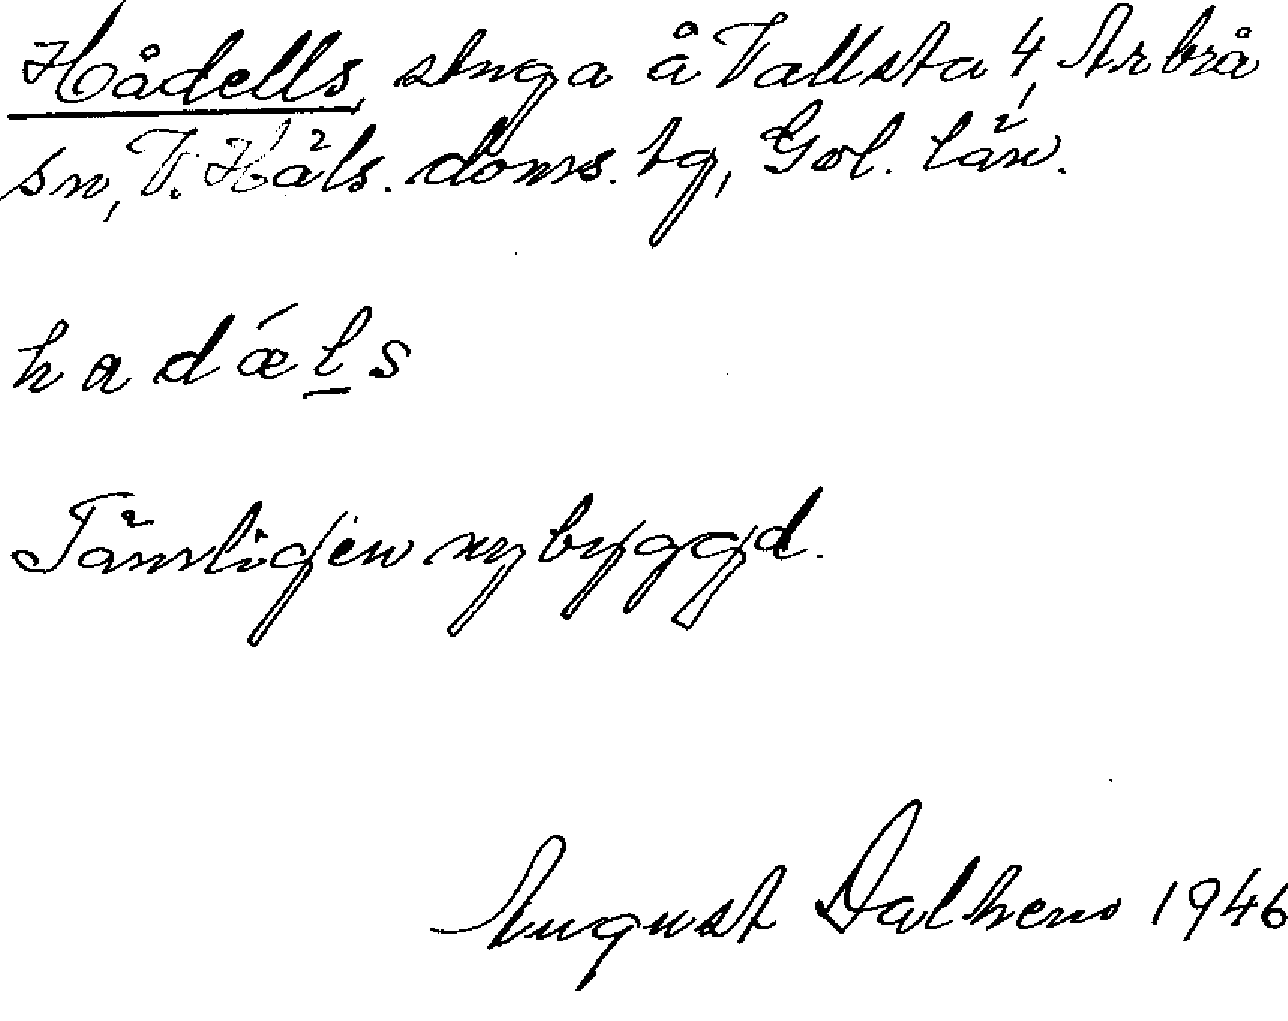 Hådells, stuga å Vallsta 4, Arbrå
sn, V. Häls. doms. tg, Gol. län.
hadǽl̲s
Tämligen nybyggd.
August Dalhem 1946